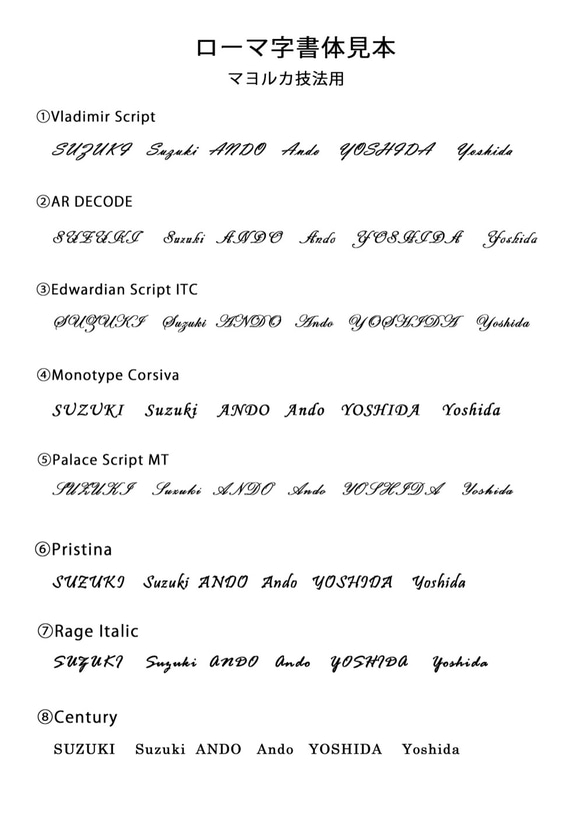 ローマ字書体見本
マヨルカ技法用
①Vladimir Script
SUZUKI Suzuki ANDO Ando YOSHIDA Yoshida
②AR DECODE
SUZUKI Suzuki ANDO Ando YOSHIDA Yoshida
③Edwardian Script ITC
SUZUKI Suzuki ANDO Ando YOSHIDA Yoshida
④Monotype Corsiva
SUZUKI Suzuki ANDO Ando YOSHIDA Yoshida
⑤Palace Script MT
SUZUKI Suzuki ANDO Ando YOSHIDA Yoshida
⑥Pristina
SUZUKI Suzuki ANDO Ando YOSHIDA Yoshida
⑦Rage Italic
SUZUKI Suzuki ANDO Ando YOSHIDA Yoshida
⑧Century
SUZUKI Suzuki ANDO Ando YOSHIDA Yoshida